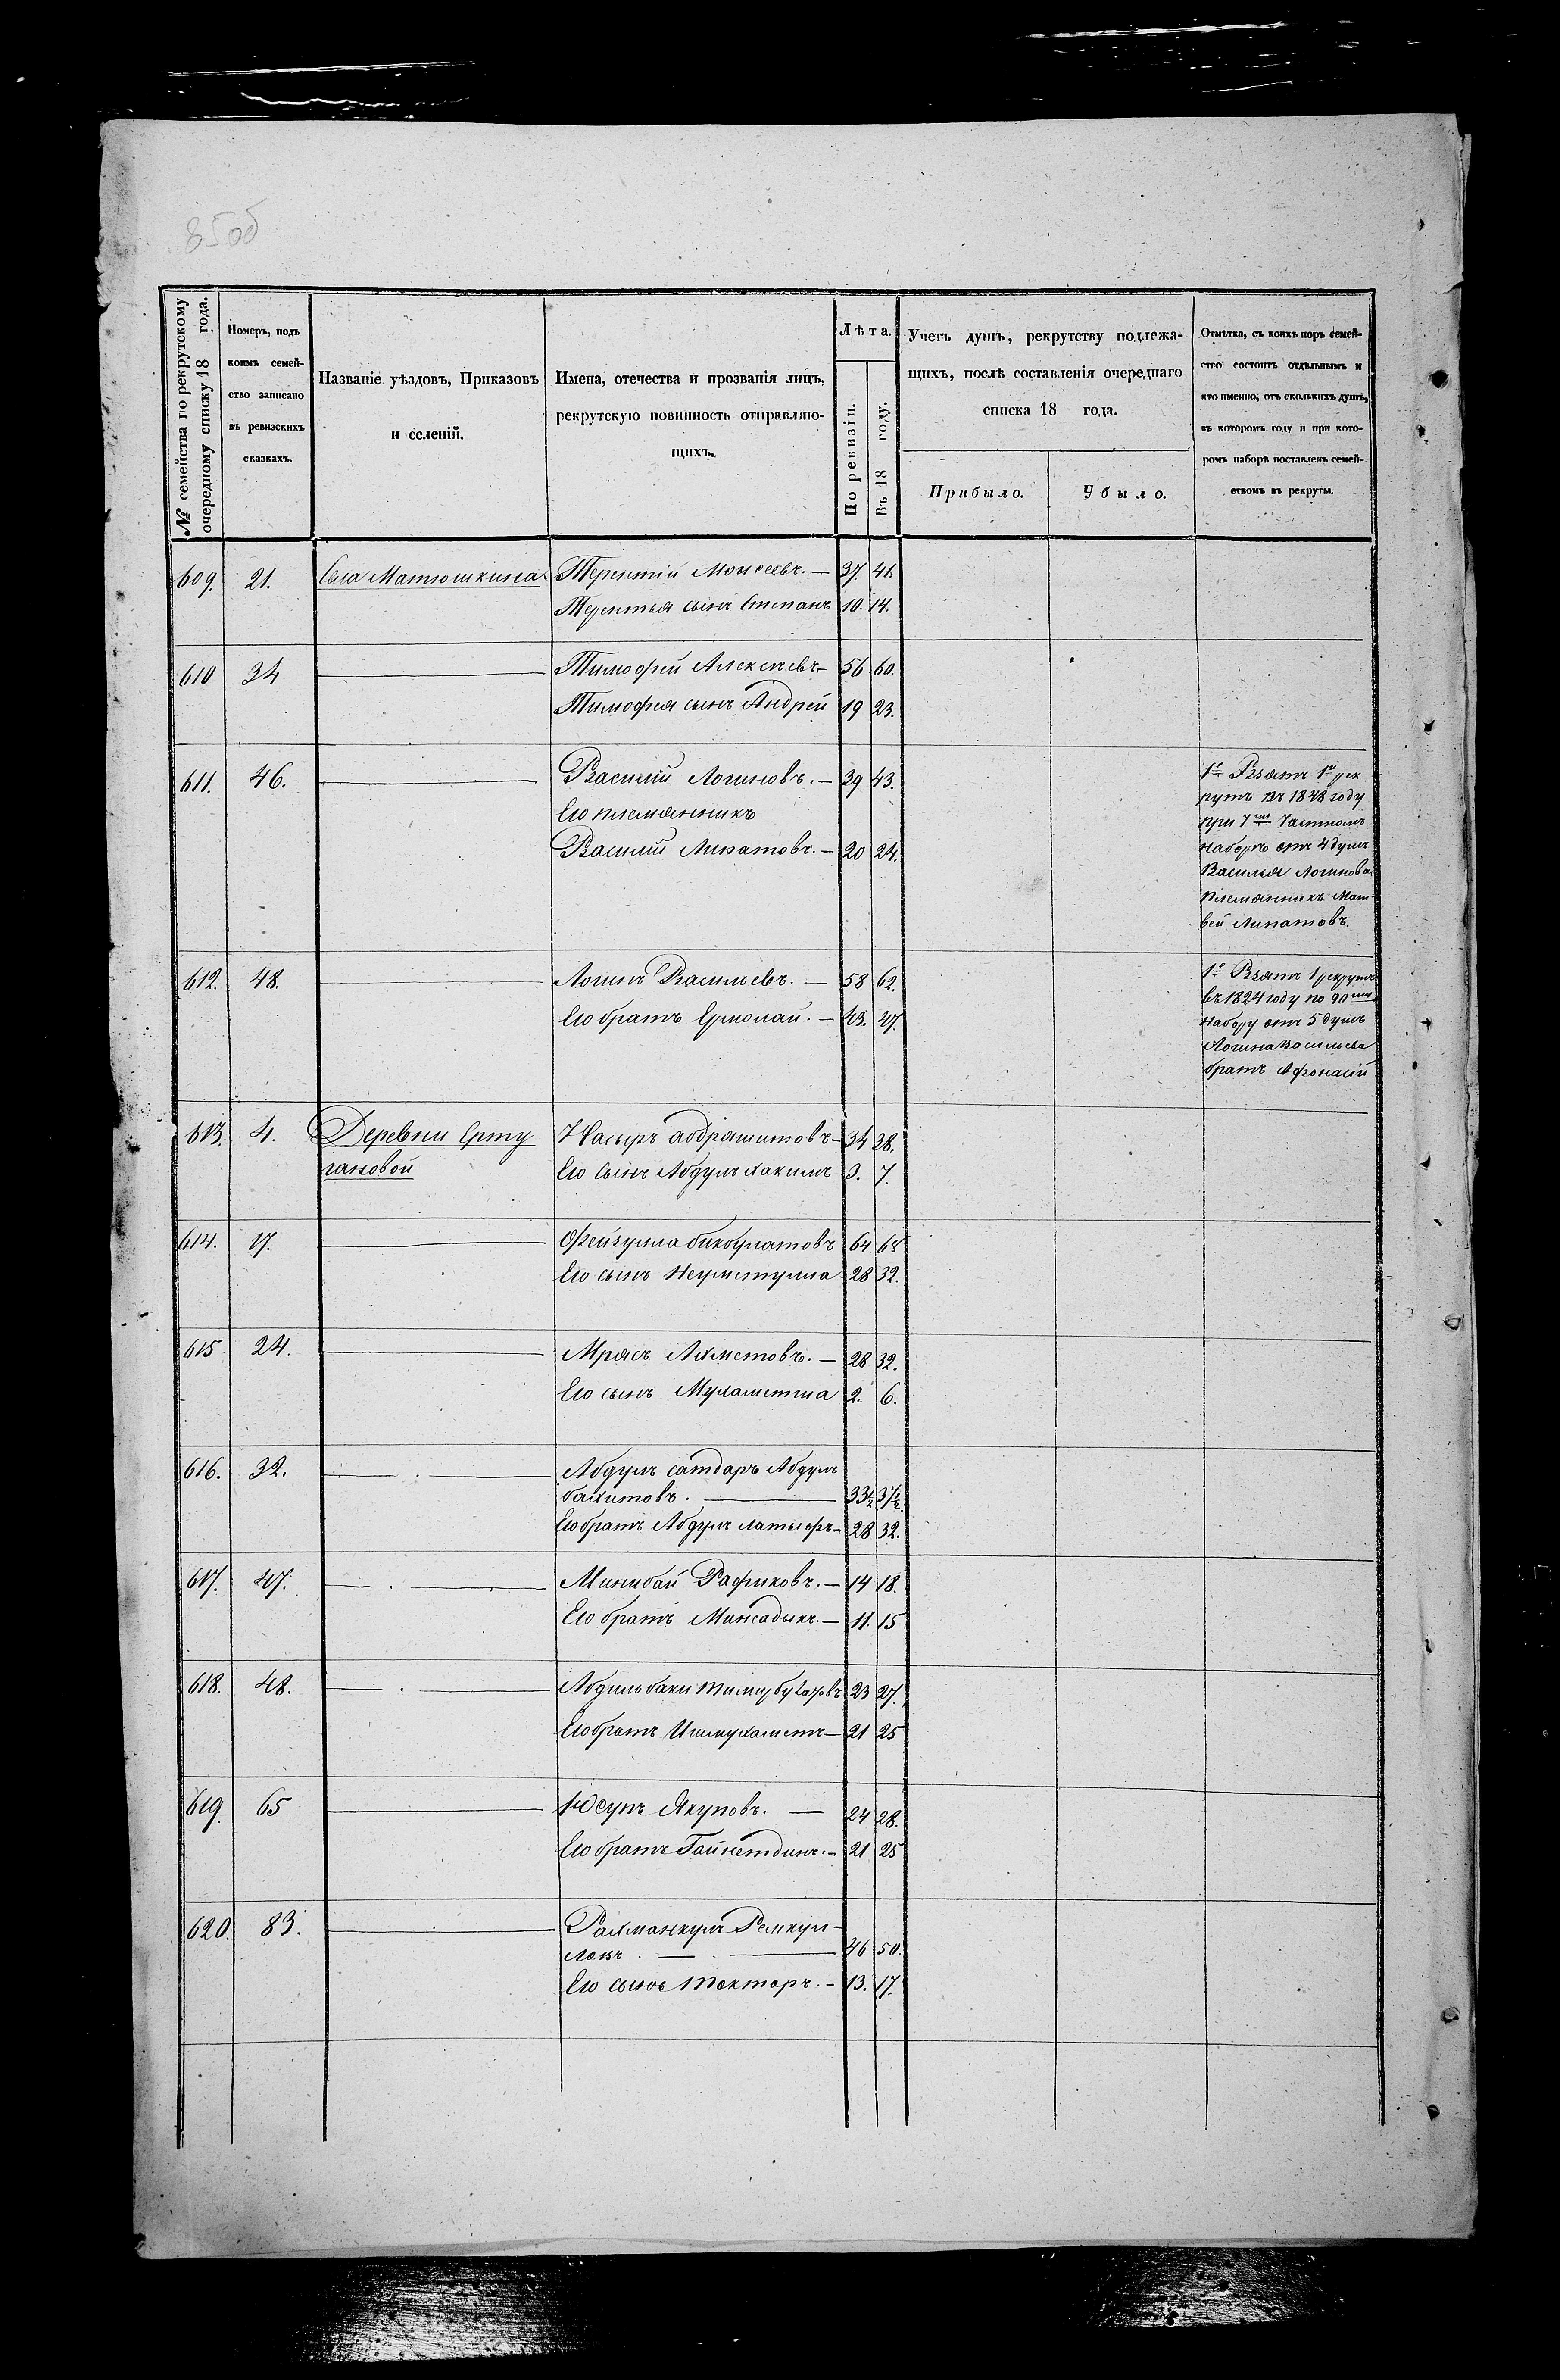 85об
№ семейства по рекрутскому очередному списку 18 года.
Номеръ, подъ
коимъ семей-
ство записано
въ ревизскихъ
сказкахъ.
Названіе уѣздовъ, Приказовъ
и селеній.
Имена, отечества и прозванія лицъ,
рекрутскую повинность отправляю-
щихъ.
Лѣта.
По ревизіи.
Въ 18 году.
Учетъ душъ, рекрутству подлежа-
щихъ, послѣ составленія очереднаго
списка 18 года.
Прибыло.
Убыло.
Отмѣтка, съ коихъ поръ семей-
ство состоитъ отдѣльнымъ и
кто именно, отъ сколькихъ душъ,
въ которомъ году и при кото-
ромъ наборѣ поставленъ семей-
ствомъ въ рекруты.
609. 21. Села Матюшкина Терентій Моисеевъ. — 37. 41.
Терентья сынъ Степанъ 10. 14.
610 34 Тимофей Алексѣевъ 56 60.
Тимофея сынъ Андрей 19 23.
611. 46. Василій Логиновъ. — 39 43.
Его племянникъ
Василій Липатовъ. — 20 24.
1е Взятъ 1й рек
рутъ въ 1848 году
при 7мъ Частномъ
наборѣ отъ 4 душъ
Василья Логинова
племянникъ Мат
вей Липатовъ.
612. 48. Логинъ Васильевъ. — 58 62.
Его братъ Ермолай. — 43. 47.
1е Взятъ 1 рекрутъ
въ 1824 году по 90му
набору отъ 5 душъ
Логина Васильева
братъ Афонасій
613. 4. Деревни Ерту
гановой
Насыръ абдряшитовъ — 34 38.
Его сынъ Абдулъ хакимъ 3. 7.
614. 17. Фейзулла бикбулатовъ 64 68
Его сынъ Неуметулла 28 32.
615 24. Мрясъ Ахметовъ. — 28 32.
Его сынъ Мухаметша 2. 6.
616. 32. Абдулъ сатдаръ Абдулъ
бахитовъ. — 33½ 37½
Его братъ Абдулъ латыфъ — 28 32.
617. 47. Минибай Рафиковъ. — 14 18.
Его братъ Минсадыкъ. — 11. 15
618. 48. Абдильбаки 23 27.
Его братъ Ишмухаметъ — 21 25
619. 65 Юсупъ Якуповъ. — 24 28.
Его братъ Гайнетдинъ. — 21 25
620. 83. Рахманкулъ Ремкул-
46 50.
Его сынъ 13. 17.